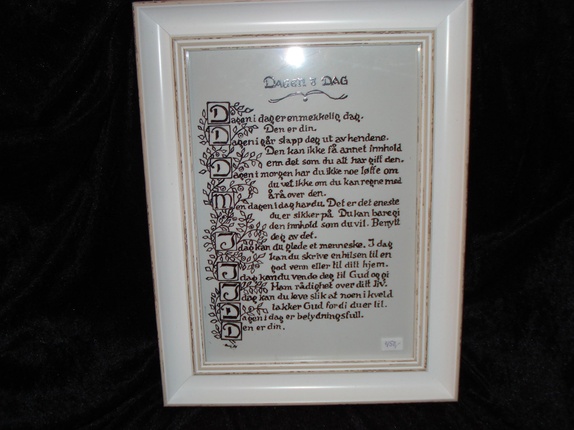 DAGEN I DAG
Dagen i dag er en merkelig dag.
Den er din.
Dagen i går slapp deg ut av hendene.
Den kan ikke få annet innhold
enn det som du alt har gitt den.
Dagen i morgen har du ikke noe løfte om
du vet ikke om du kan regne med
å rå over den.
Men dagen i dag har du. Det er det eneste
du er sikker på. Du kan bare gi
den innhold som du vil. Benytt
deg av det.
I dag kan du glede et menneske. I dag
kan du skrive en hilsen til en
god venn eller til ditt hjem.
I dag kan du vende deg til Gud og gi
Ham rådighet over ditt liv.
I dag kan du leve slik at noen i kveld
takker Gud fordi du er til.
Dagen i dag er betydningsfull.
Den er din.